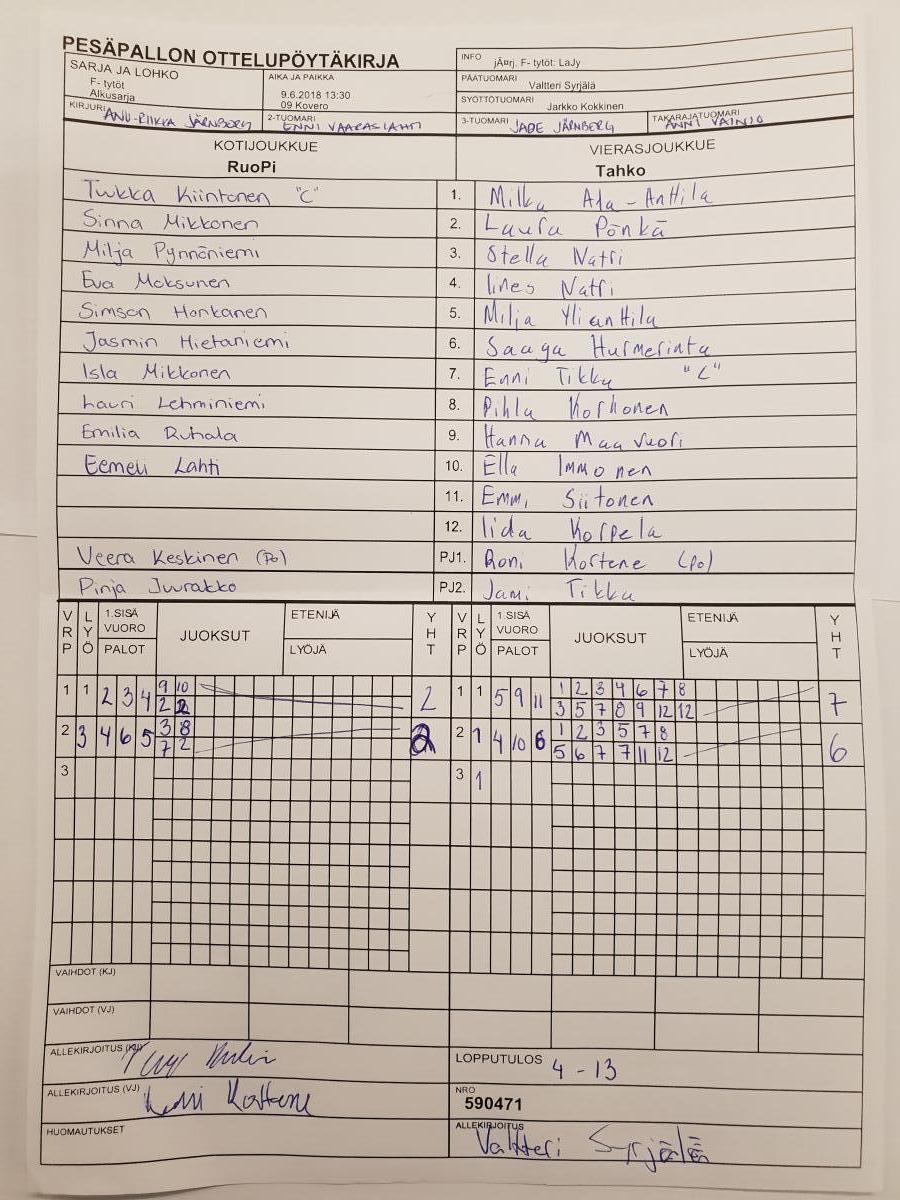 PESÄPALLON OTTELUPÖYTÄKIRJA
SARJA JA LOHKO
F- tytöt
Alkusarja
AIKA JA PAIKKA
9.6.2018 13:30
09 Kovero
INFO jÃ¤rj. F- tytöt: LaJy
PÄÄTUOMARI Valtteri Syrjälä
SYÖTTÖTUOMARI Jarkko Kokkinen
KIRJURI ANU-RIIKKA JÄRNBERG
2-TUOMARI ENNI VAARASLAHTI
3-TUOMARI JADE JÄRNBERG
TAKARAJATUOMARI ANNI VAINIO
KOTIJOUKKUE VIERASJOUKKUE
RuoPi Tahko
Tuukka Kiintonen "C" 1. Milka Ala-Anttila
Sinna Mikkonen 2. Laura Pönkä
Milja Pynnöniemi 3. Stella Natri
Eva Moksunen 4. Iines Natri
Simson Honkanen 5. Milja Ylianttila
Jasmin Hietaniemi 6. Saaga Hurmerinta
Isla Mikkonen 7. Enni Tikka "C"
Lauri Lehminiemi 8. Pihla Korhonen
Emilia Ruhala 9. Hanna Maavuori
Eemeli Lahti 10. Ella Immonen
11. Emmi Siitonen
12. Iida Korpela
Veera Keskinen (Po) PJ1. Roni Kortene (po)
Pinja Juurakko PJ2. Jami Tikka
VRP LYÖ 1.SISÄ VUORO PALOT JUOKSUT ETENIJÄ LYÖJÄ YHT VRP LYÖ 1.SISÄ VUORO PALOT JUOKSUT ETENIJÄ LYÖJÄ YHT
1 1 2 3 4 9 10 2 1 1 5 9 11 1 2 3 4 6 7 8 7
2 2 3 5 7 8 9 12 12
2 3 4 6 5 3 8 2 2 1 4 10 6 1 2 3 5 7 8 6
7 2 5 6 7 7 11 12
3 3 1
VAIHDOT (KJ)
VAIHDOT (VJ)
ALLEKIRJOITUS (KJ)
LOPPUTULOS 4 - 13
ALLEKIRJOITUS (VJ)
NRO
590471
HUOMAUTUKSET
ALLEKIRJOITUS
Valtteri Syrjälä